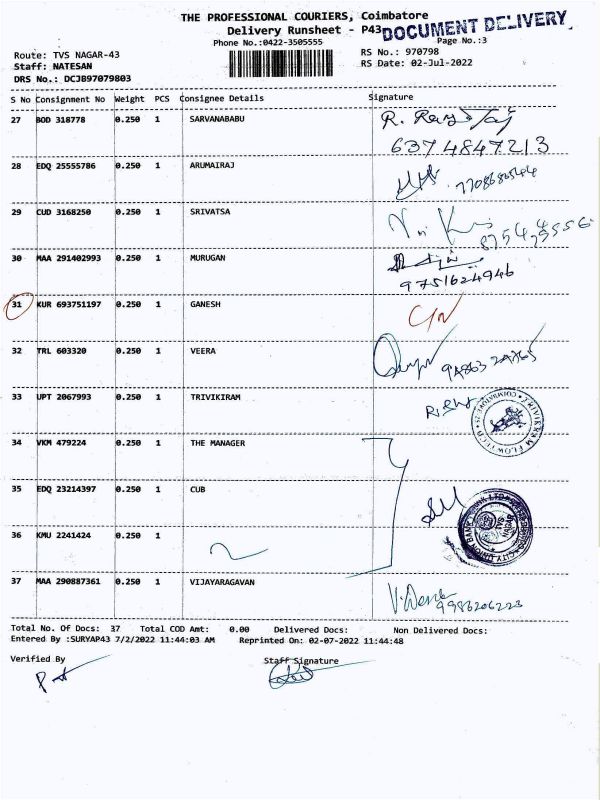 THE PROFESSIONAL COURIERS, Coimbatore
Delivery Runsheet - P43
DOCUMENT DELIVERY
Phone No.:0422-3505555
Page No.:3
Route: TVS NAGAR-43
RS No.: 970798
Staff: NATESAN
RS Date: 02-Jul-2022
DRS No.: DCJ897079803
S No Consignment No Weight PCS Consignee Details Signature
27 BOD 318778 0.250 1 SARVANABABU
6374847213
28 EDQ 25555786 0.250 1 ARUMAIRAJ
29 CUD 3168250 0.250 1 SRIVATSA
30 MAA 291402993 0.250 1 MURUGAN
9751624946
31 KUR 693751197 0.250 1 GANESH
32 TRL 603320 0.250 1 VEERA
33 UPT 2067993 0.250 1 TRIVIKIRAM
34 VKM 479224 0.250 1 THE MANAGER
35 EDQ 23214397 0.250 1 CUB
TVS NAGAR
36 KMU 2241424 0.250 1
37 MAA 290887361 0.250 1 VIJAYARAGAVAN
Total No. Of Docs: 37 Total COD Amt: 0.00 Delivered Docs: Non Delivered Docs:
Entered By :SURYAP43 7/2/2022 11:44:03 AM Reprinted On: 02-07-2022 11:44:48
Verified By Staff Signature